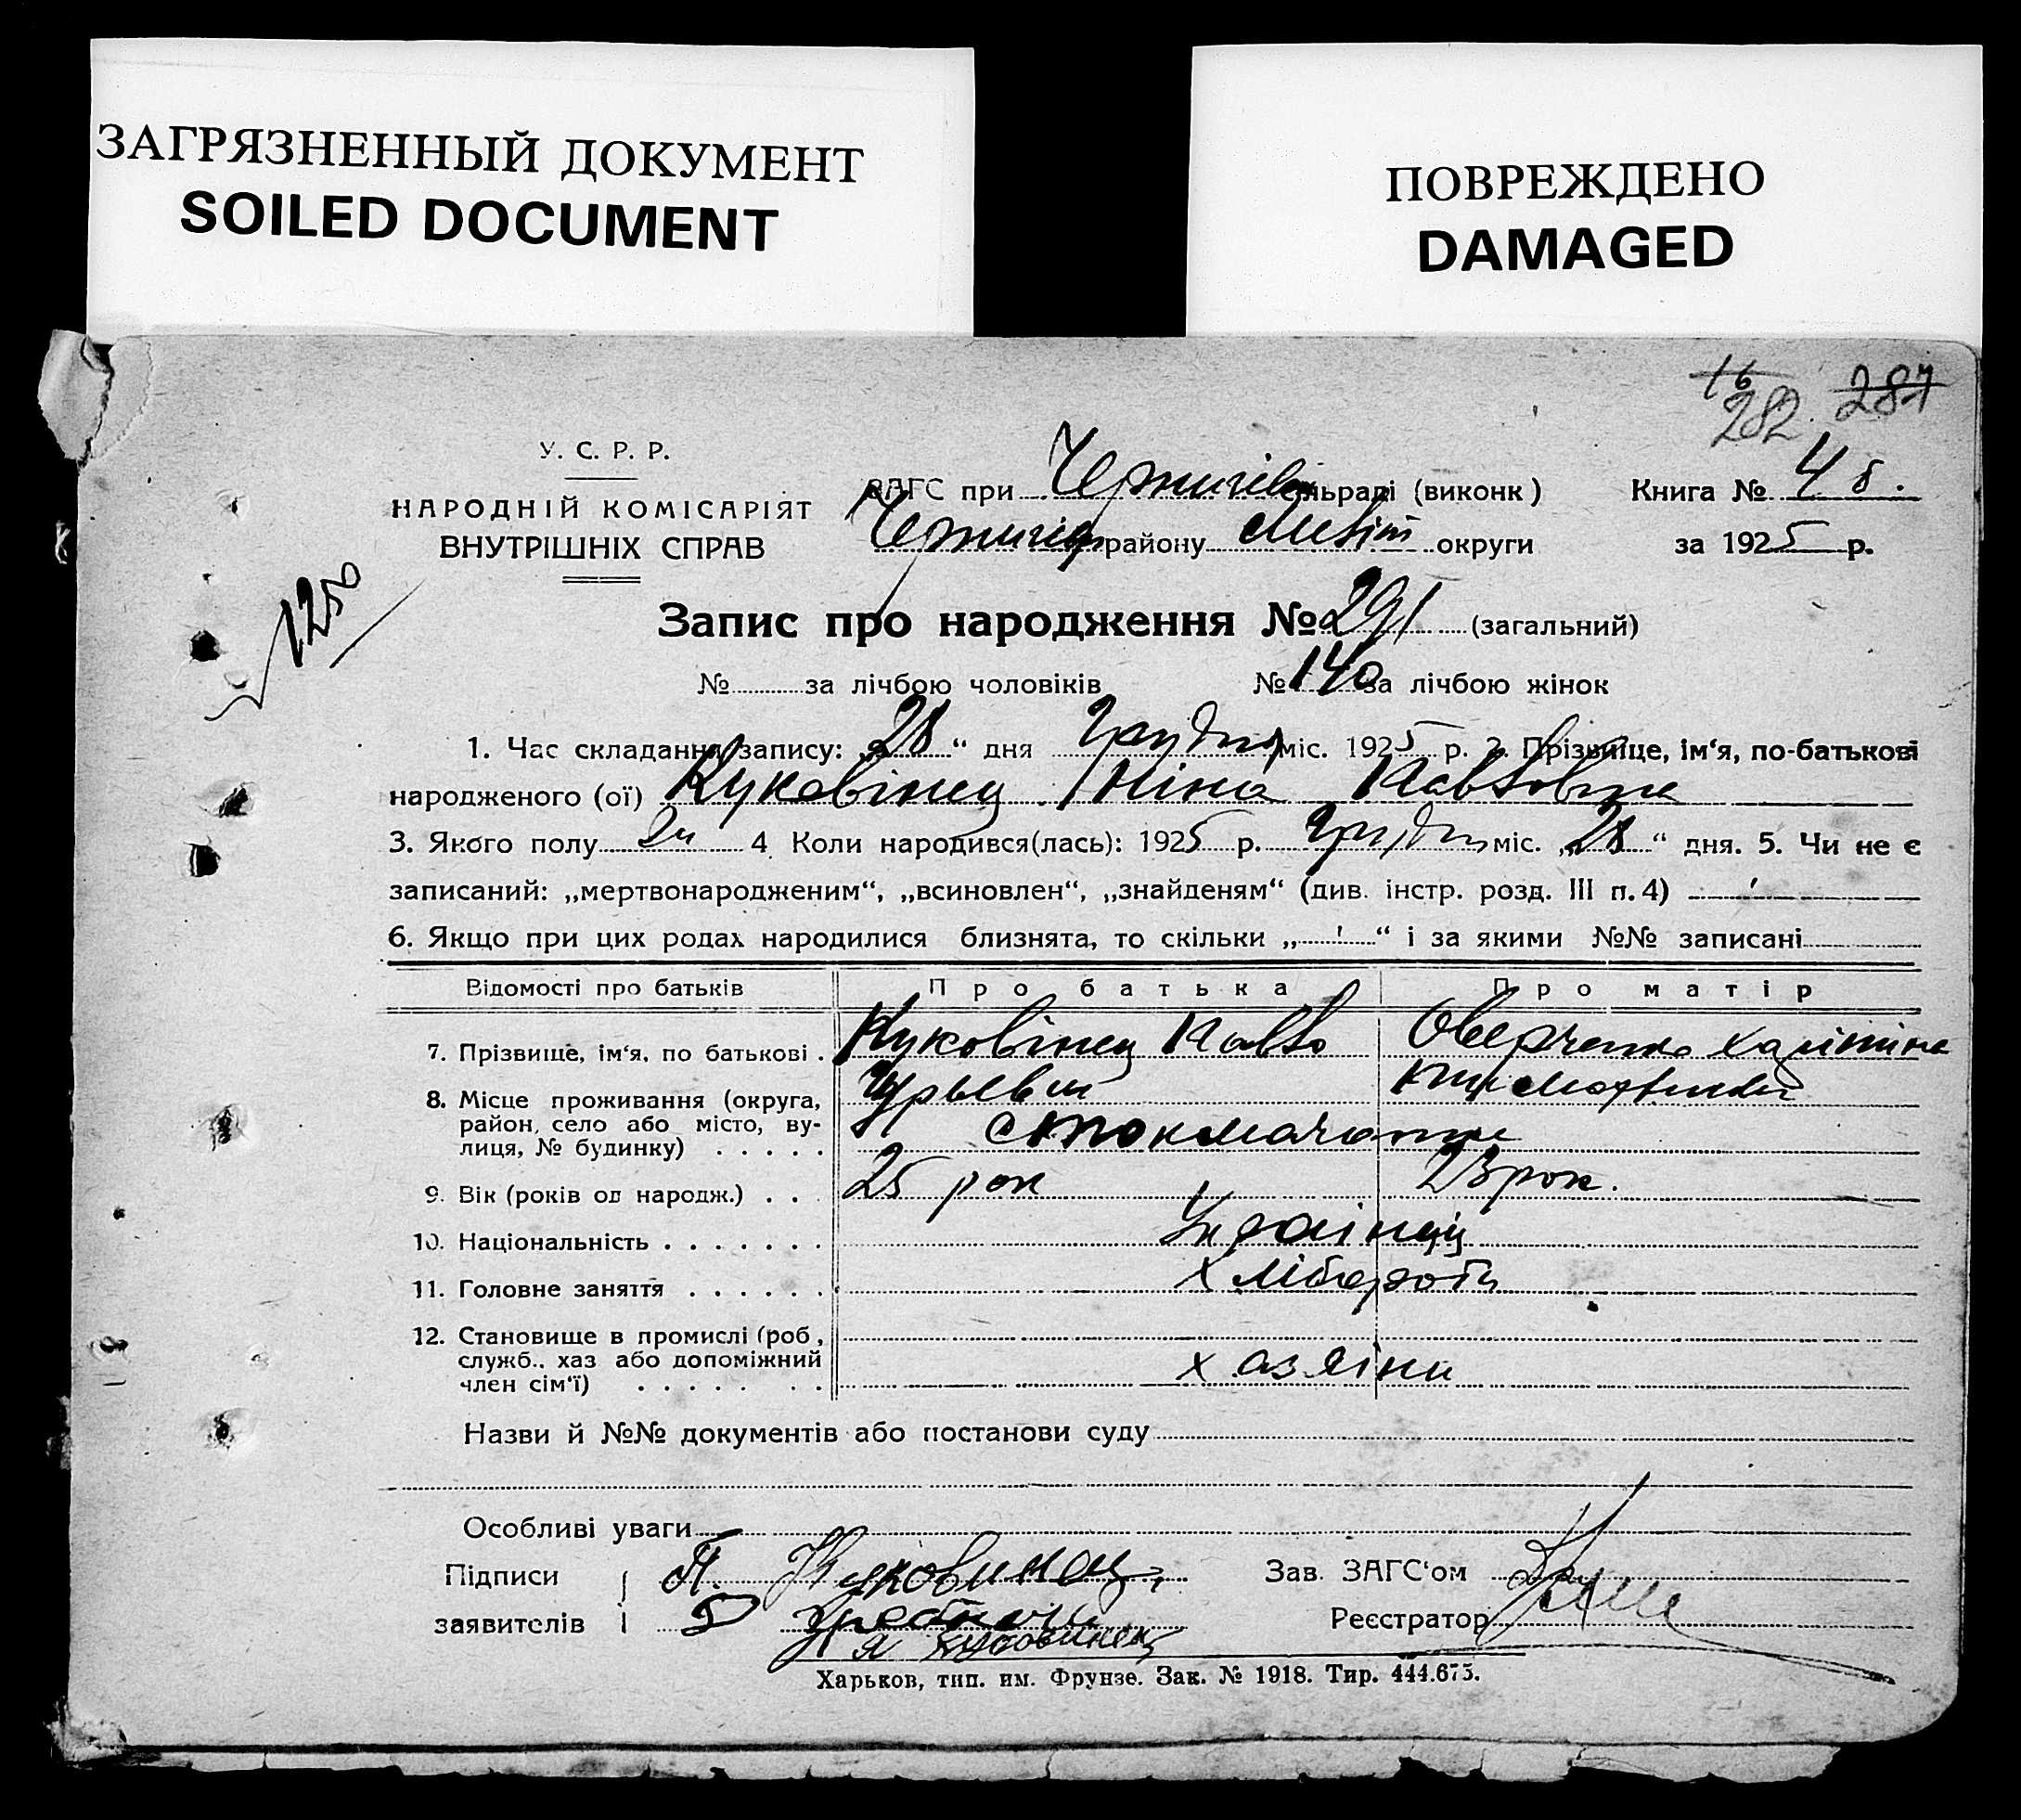 ЗАГРЯЗНЕННЫЙ ДОКУМЕНТ
SOILED DOCUMENT
ПОВРЕЖДЕНО
DAMAGED
16
282. 287
У. С. Р. Р.
НАРОДНІЙ КОМІСАРІЯТ
ВНУТРІШНІХ СПРАВ
ЗАГС при Чернигів сільраді (виконк) Книга №
району округи за 1925 р.
1250
Запис про народження № 291 (загальний)
№ за лічбою чоловіків № 140 за лічбою жінок
1. Час складання запису: „28“ дня Грудня міс. 1925 р. 2. Прізвище, ім‘я, по-батькові
народженого (ої) Куковінец Ніна Павловна
3. Якого полу 4. Коли народився(лась): 1925 р. Грудня міс. „28“ дня. 5. Чи не є
записаний: „мертвонародженим“, „всиновлен“, „знайденям“ (див. інстр. розд. III п. 4)
6. Якщо при цих родах народилися близнята, то скільки „ “ і за якими №№ записані
Відомості про батьків Про батька Про матір
7. Прізвище, ім‘я, по батькові . Куковінец Павло
8. Місце проживання (округа,
район, село або місто, ву-
лиця, № будинку) . . . . .
9. Вік (років од народж.) . . . 25 рок 23 рок.
10. Національність . . . . . . . Українці
11. Головне заняття . . . . . . Хлібороби
12. Становище в промислі (роб.,
служб., хаз або допоміжний
член сім‘ї) . . . . . . . хазяіни
Назви й №№ документів або постанови суду
Особливі уваги
Підписи П. Куковинец, Зав. ЗАГС‘ом
заявителів Реєстратор
Я Куковинец
Харьков, тип. им. Фрунзе. Зак. № 1918. Тир. 444.675.